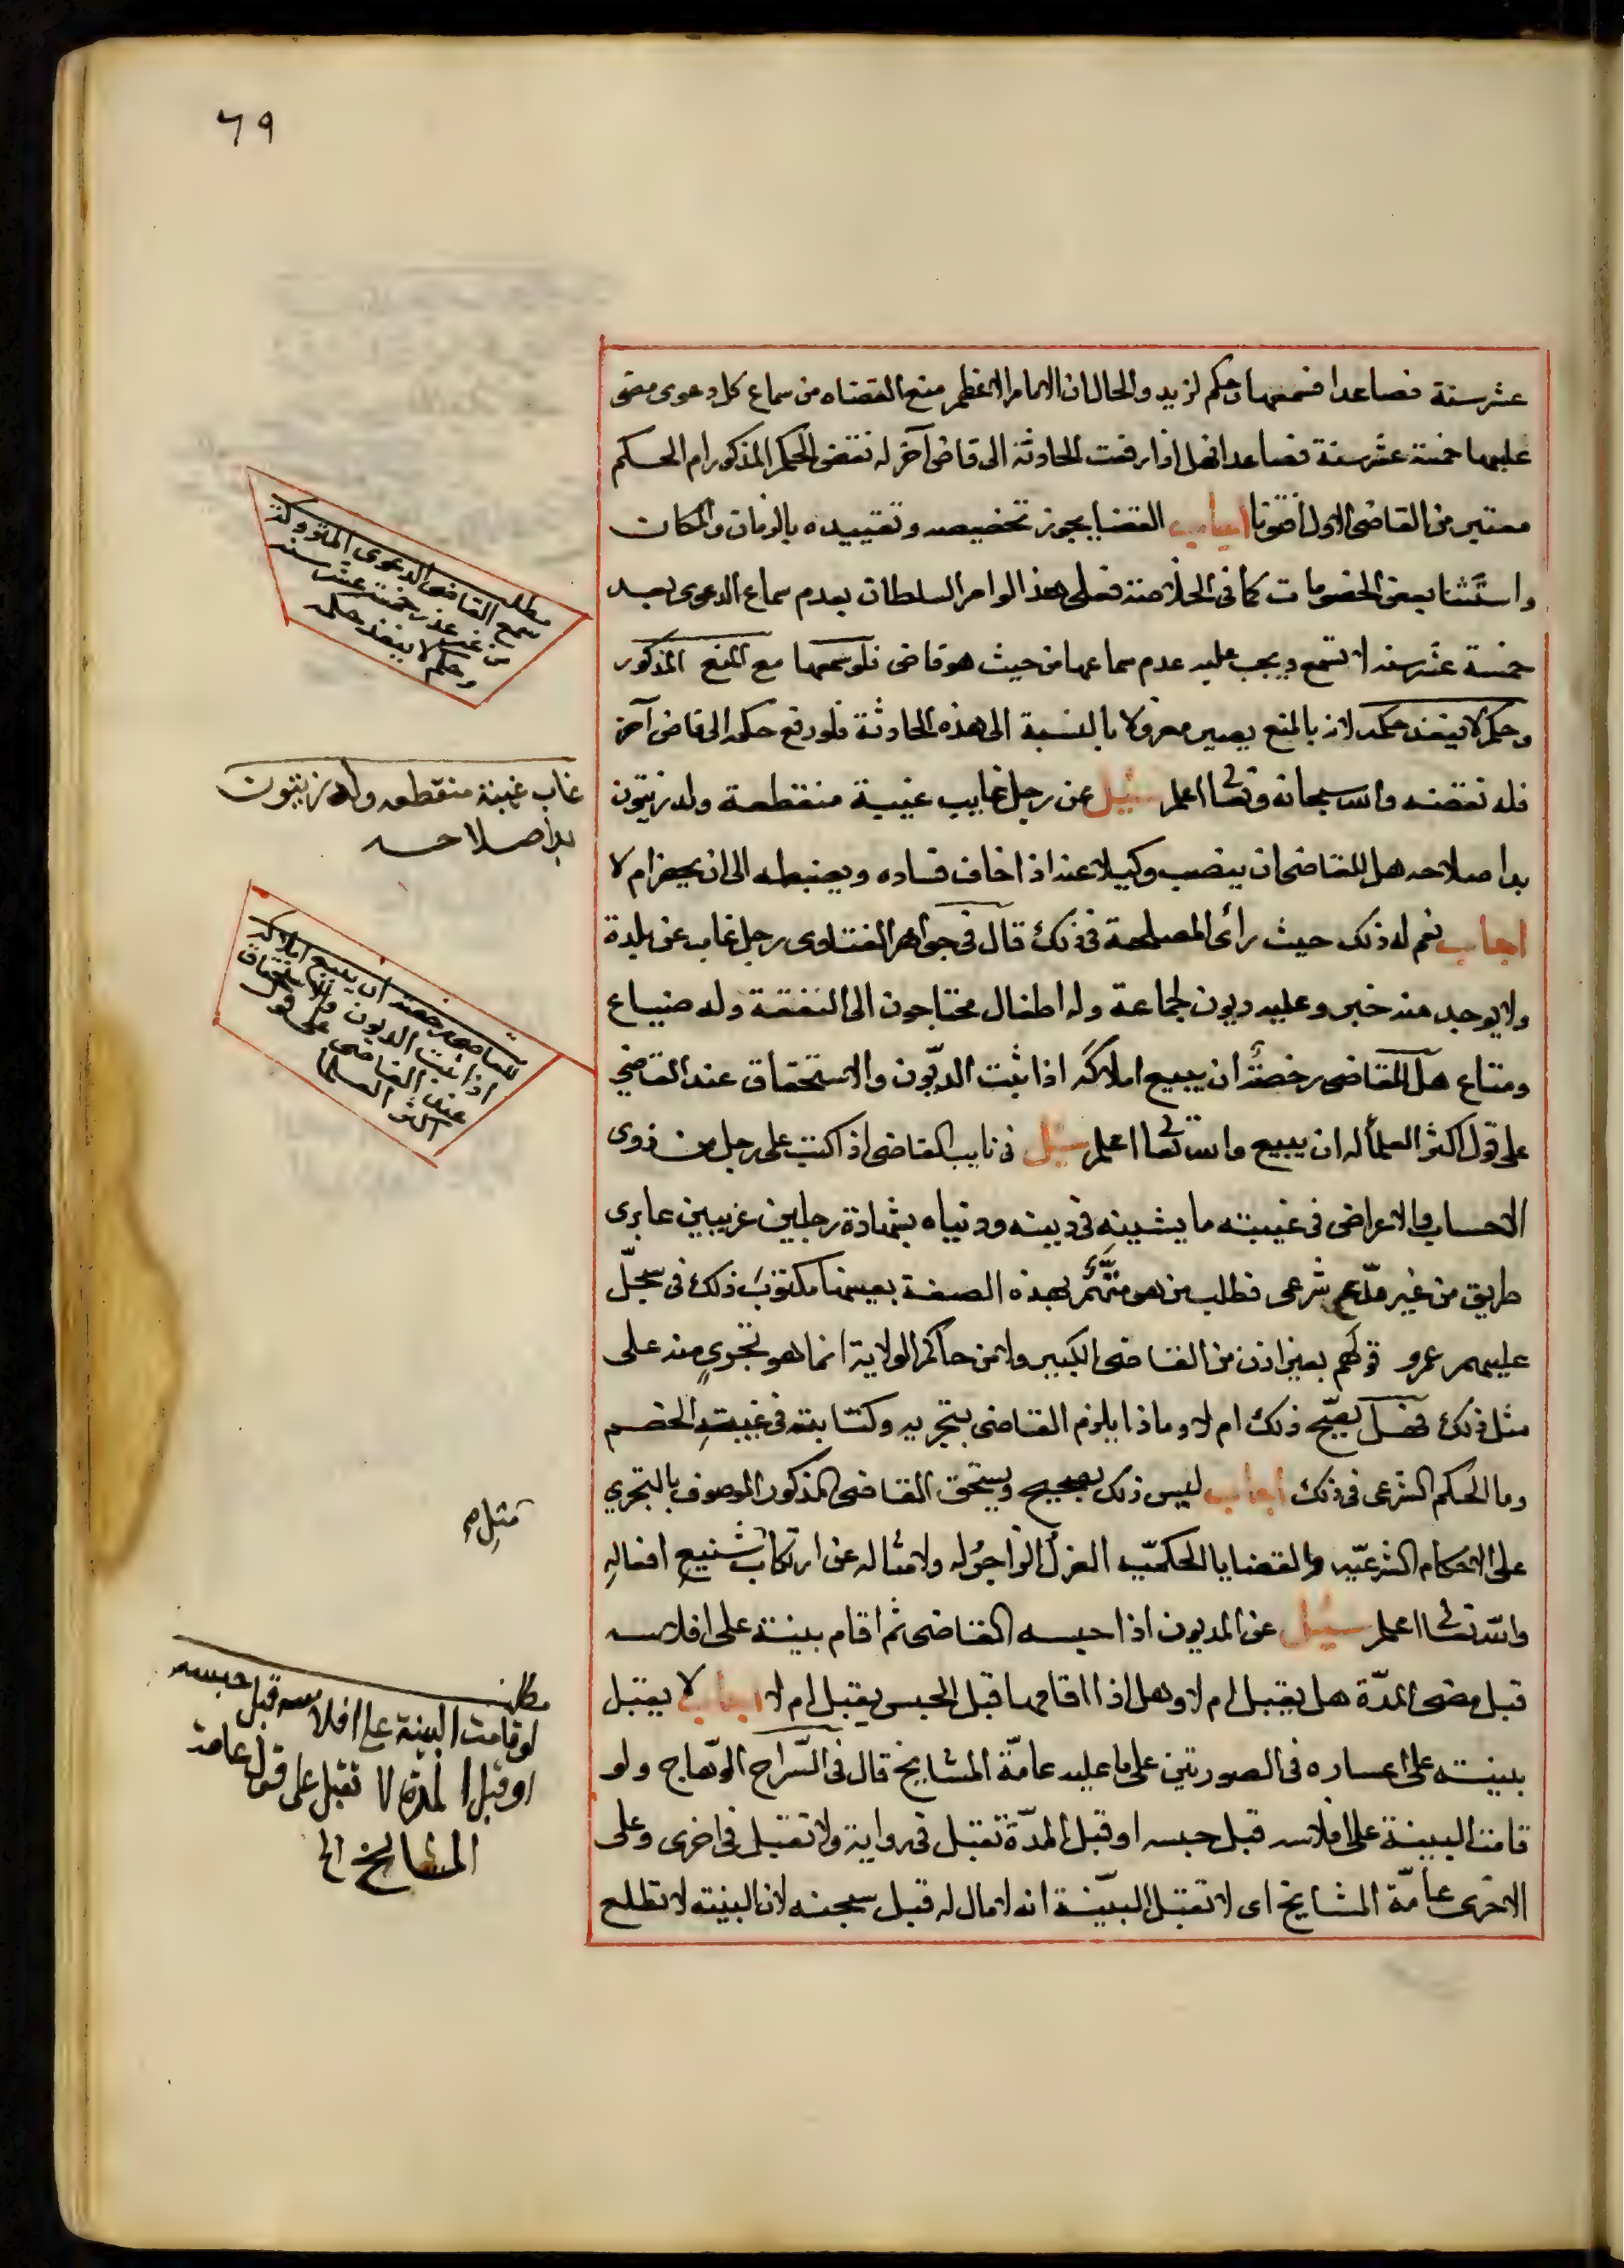 ٦٩
عشر سنة فصاعدا فسمعها وحكم لزيد والحال ان الامام الاعظم منع القضاه من سماع كل دعوى مضى
عليها خمسة عشر سنة فصاعدا فهل اذا رفعت الحادثة الى قاض آخر له نقض الحكم المذكور ام الحكم
معتبر من القاضى الاول افتونا اجاب القضا يجوز تخصيصه وتقييده بالزمان والمكان
واستثنا بعض الخصومات كما فى الخلاصة فعلى هذا لو امر السلطان بعدم سماع الدعوى بعد
خمسة عشر سنه لا تسمع ويجب عليه عدم سماعها من حيث هو قاضى فلو سمعها مع المنع المذكور
وحكم لا ينفذ حكمه لانه بالمنع يصير معزولا بالنسبة الى هذه الحادثة فلو رفع حكمه الى قاض آخر
فله نقضه والله سبحانه وتعالى اعلم سئيل عن رجل غايب غيبة منقطعة وله زيتون
بدا صلاحه هل للقاضى ان ينصب وكيلا عنه اذا خاف فساده ويضبطه الى ان يحضر ام لا
اجاب نعم له ذلك حيث رائ المصلحة فى ذلك قال فى جواهر الفتاوى رجل غاب عن بلدة
ولا يوجد منه خبر وعليه ديون لجماعة وله اطفال محتاجون الى النفقة وله ضياع
ومتاع هل للقاضى رخصة ان يبيع املاكه اذا ثبت الديّون والاستحقاق عند القاضي
على قول اكثر العلمأ له ان يبيع والله تعالى اعلم سئيل فى نايب القاضى اذ اكتب على رجل من ذوى
الاحساب والاعراض فى غيبته ما يشينه فى دينه ودنياه بشهادة رجلين غريبين عابرى
طريق من غير مدّعٍ شرعى فطلب من هو متهَّم بهذه الصفة بعينها مكتوبَ ذلك فى سجلّ
عليهم عمرو قولهم بغير اذن من القاضى الكبير ولا من حاكم الولاية انما هو تجرى منه على
مثل ذلك فهل يصحّ ذلك ام لا وماذا يلزم القاضى بتجريه وكتابته فى غيبة الخصم
وما الحكم الشرعى فى ذلك اجاب ليس ذلك بصحيح ويستحق القاضى المذكور الموصوف بالتجري
على الاحكام الشرعيّه والقضايا الحكميّه العزل الزاجر له ولامثاله عن ارتكاب شنيع افعاله
والله تعالى اعلم سئيل عن المديون اذا حبسه القاضى ثم اقام بينة على افلاسه
قبل مضى المدّة هل يقبل ام لا وهل اذا اقامها قبل الحبس يقبل ام لا اجاب لا يقبل
ببينته على اعساره فى الصورتين على ما عليه عامّة المشايخ قال فى السّراج الوهّاج ولو
قامت البينة على افلاسه قبل حبسه او قبل المدّة تقبل فى رواية ولا تقبل فى اخرى وعلى
الاخرى عامّة المشايخ اى لا تقبل البيّنة انه لا مال له قبل سجنه لان البينه لا تطلع
مطلب
سمع القاضى الدعوى المتروكة
من غير عذر خمسة عشر سنه
وحكم لا ينفذ حكمه
غاب غيبة منقطعه وله زيتون
بدا صلاحه
للقاضى رخصة ان يبيع املاكه
اذا ثبت الديون والاستحقاق
عند القاضى على قول
اكثر العلما
مطلب
لو قامت البينة على افلاسه قبل حبسه
او قبل المدة لا تقبل على قول عامة
المشايخ الخ